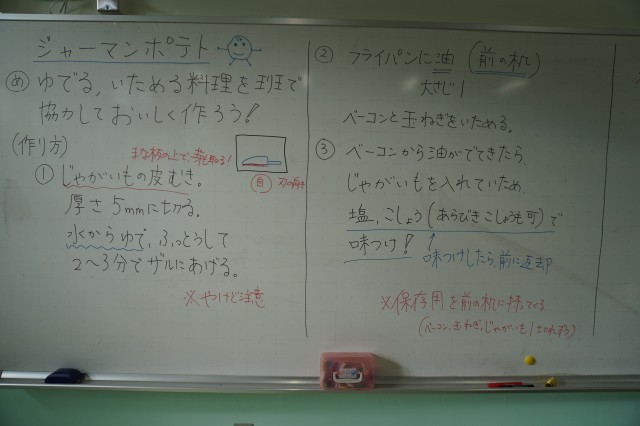 ジャーマンポテト
め ゆでる、いためる料理を班で
協力しておいしく作ろう!
(作り方)
まな板の上で、芽を取る!
自 刃の向き
① じゃがいもの皮むき。
厚さ5mmに切る。
水からゆで、ふっとうして
2〜3分でザルにあげる。
※やけど注意
② フライパンに油 (前の机)
大さじ1
ベーコンと玉ねぎをいためる。
③ ベーコンから油がでてきたら、
じゃがいもを入れていため、
塩、こしょう(あらびきこしょうも可)で
味つけ!
↑味つけしたら、前に返却
※保存用を前の机に持ってくる
(ベーコン、玉ねぎ、じゃがいも1切れずつ)